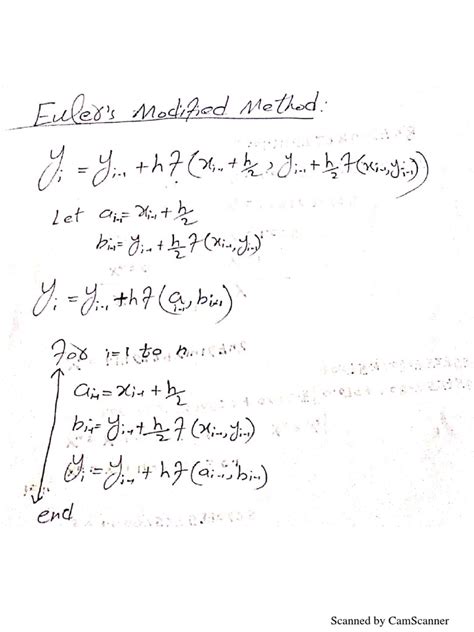 Euler's Modified Method:
y_i = y_{i-1} + h f(x_{i-1} + h/2, y_{i-1} + h/2 f(x_{i-1}, y_{i-1}))
Let a_{i-1} = x_{i-1} + h/2
b_{i-1} = y_{i-1} + h/2 f(x_{i-1}, y_{i-1})
y_i = y_{i-1} + h f(a_{i-1}, b_{i-1})
For i=1 to n
a_{i-1} = x_{i-1} + h/2
b_{i-1} = y_{i-1} + h/2 f(x_{i-1}, y_{i-1})
y_i = y_{i-1} + h f(a_{i-1}, b_{i-1})
end
Scanned by CamScanner